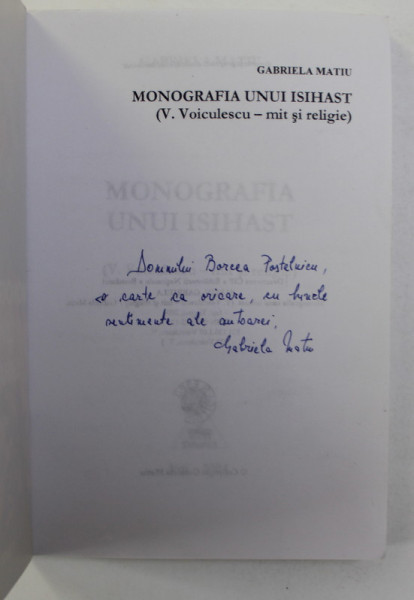 GABRIELA MATIU
MONOGRAFIA UNUI ISIHAST
(V. Voiculescu – mit şi religie)
MONOGRAFIA
UNUI ISIHAST
Domnului Borcea Postelnicu,
o carte ca oricare, cu bunele
sentimente ale autoarei,
Gabriela Matiu